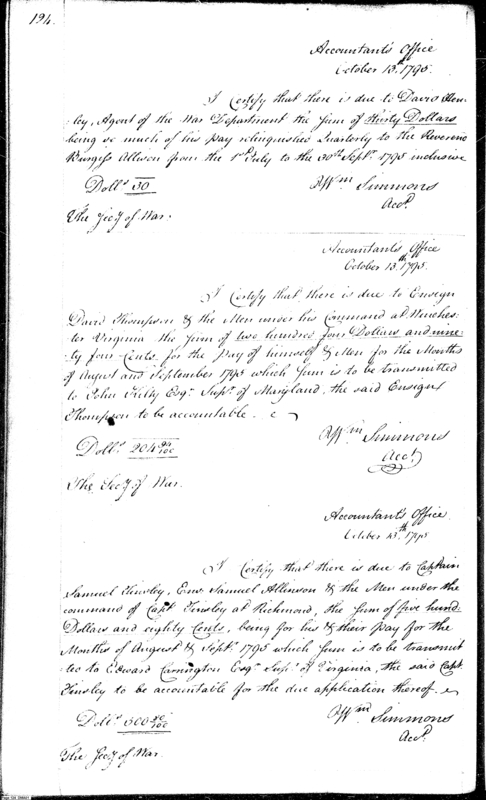 194.
Accountant's Office
October 13th 1795.
I Certify that there is due to David Hen-
ley, Agent of the War Department the sum of Thirty Dollars
being so much of his pay relinquished Quarterly to the Reverend
Burgess Allison from the 1st July to the 30th Septr. 1795 inclusive
Dolls. 30
Wm Simmons
Acct.
The Secy of War.
Accountant's Office
October 13th 1795.
I Certify that there is due to Ensign
David Thompson & the Men under his Command at Winches-
ter Virginia the sum of two hundred four Dollars and nine-
ty four Cents, for the pay of himself & Men for the Months
of August and September 1795 which sum is to be transmitted
to John Esqr. Supr. of Maryland, the said Ensign
Thompson to be accountable.
Dolls. 204 94/100
Wm Simmons
Acct
The Secy of War.
Accountant's Office
October 13th 1795
I Certify that there is due to Captain
Samuel Tinsley, Ens. Samuel Allinson & the Men under the
command of Capt Tinsley at Richmond, the sum of five hund
Dollars and eighty Cents, being for his & their pay for the
Months of August & Septr. 1795 which sum is to be transmit-
ted to Edward Carrington Esqr. Supr. of Virginia, the said Capt
Tinsley to be accountable for the due application thereof.
Dolls. 500 80/100
Wm Simmons
Acct.
The Secy of War.